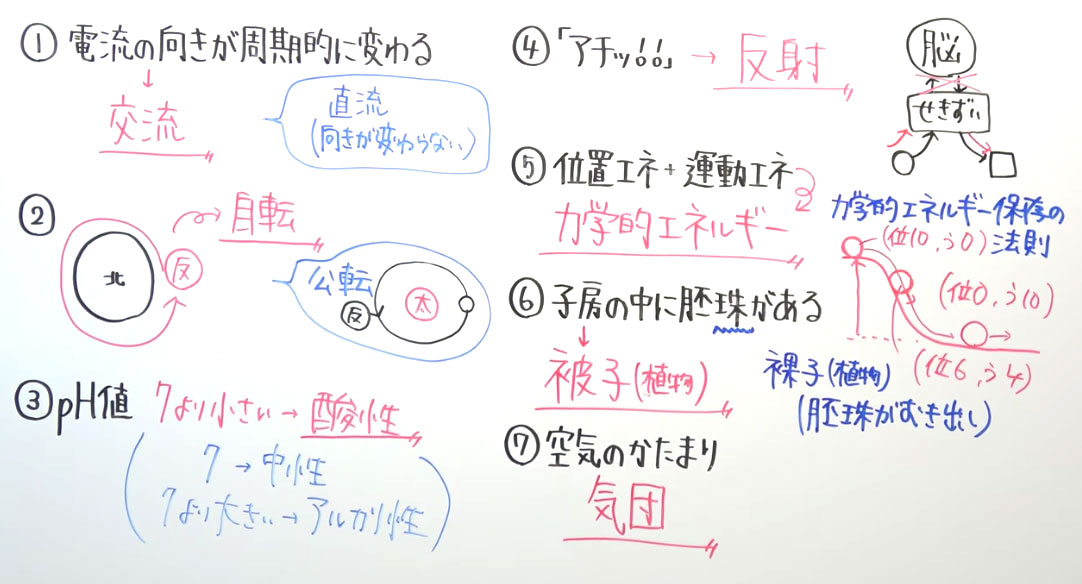 ① 電流の向きが周期的に変わる
↓
交流
直流
(向きが変わらない)
②
自転
北
反
公転
反
太
③ pH値 7より小さい→酸性
(7→中性
7より大きい→アルカリ性)
④ 「アチッ!!」→反射
脳
せきずい
⑤ 位置エネ+運動エネ
力学的エネルギー
力学的エネルギー保存の
法則
(位10,う0)
(位0,う10)
(位6,う4)
⑥ 子房の中に胚珠がある
↓
被子(植物)
裸子(植物)
(胚珠がむき出し)
⑦ 空気のかたまり
気団